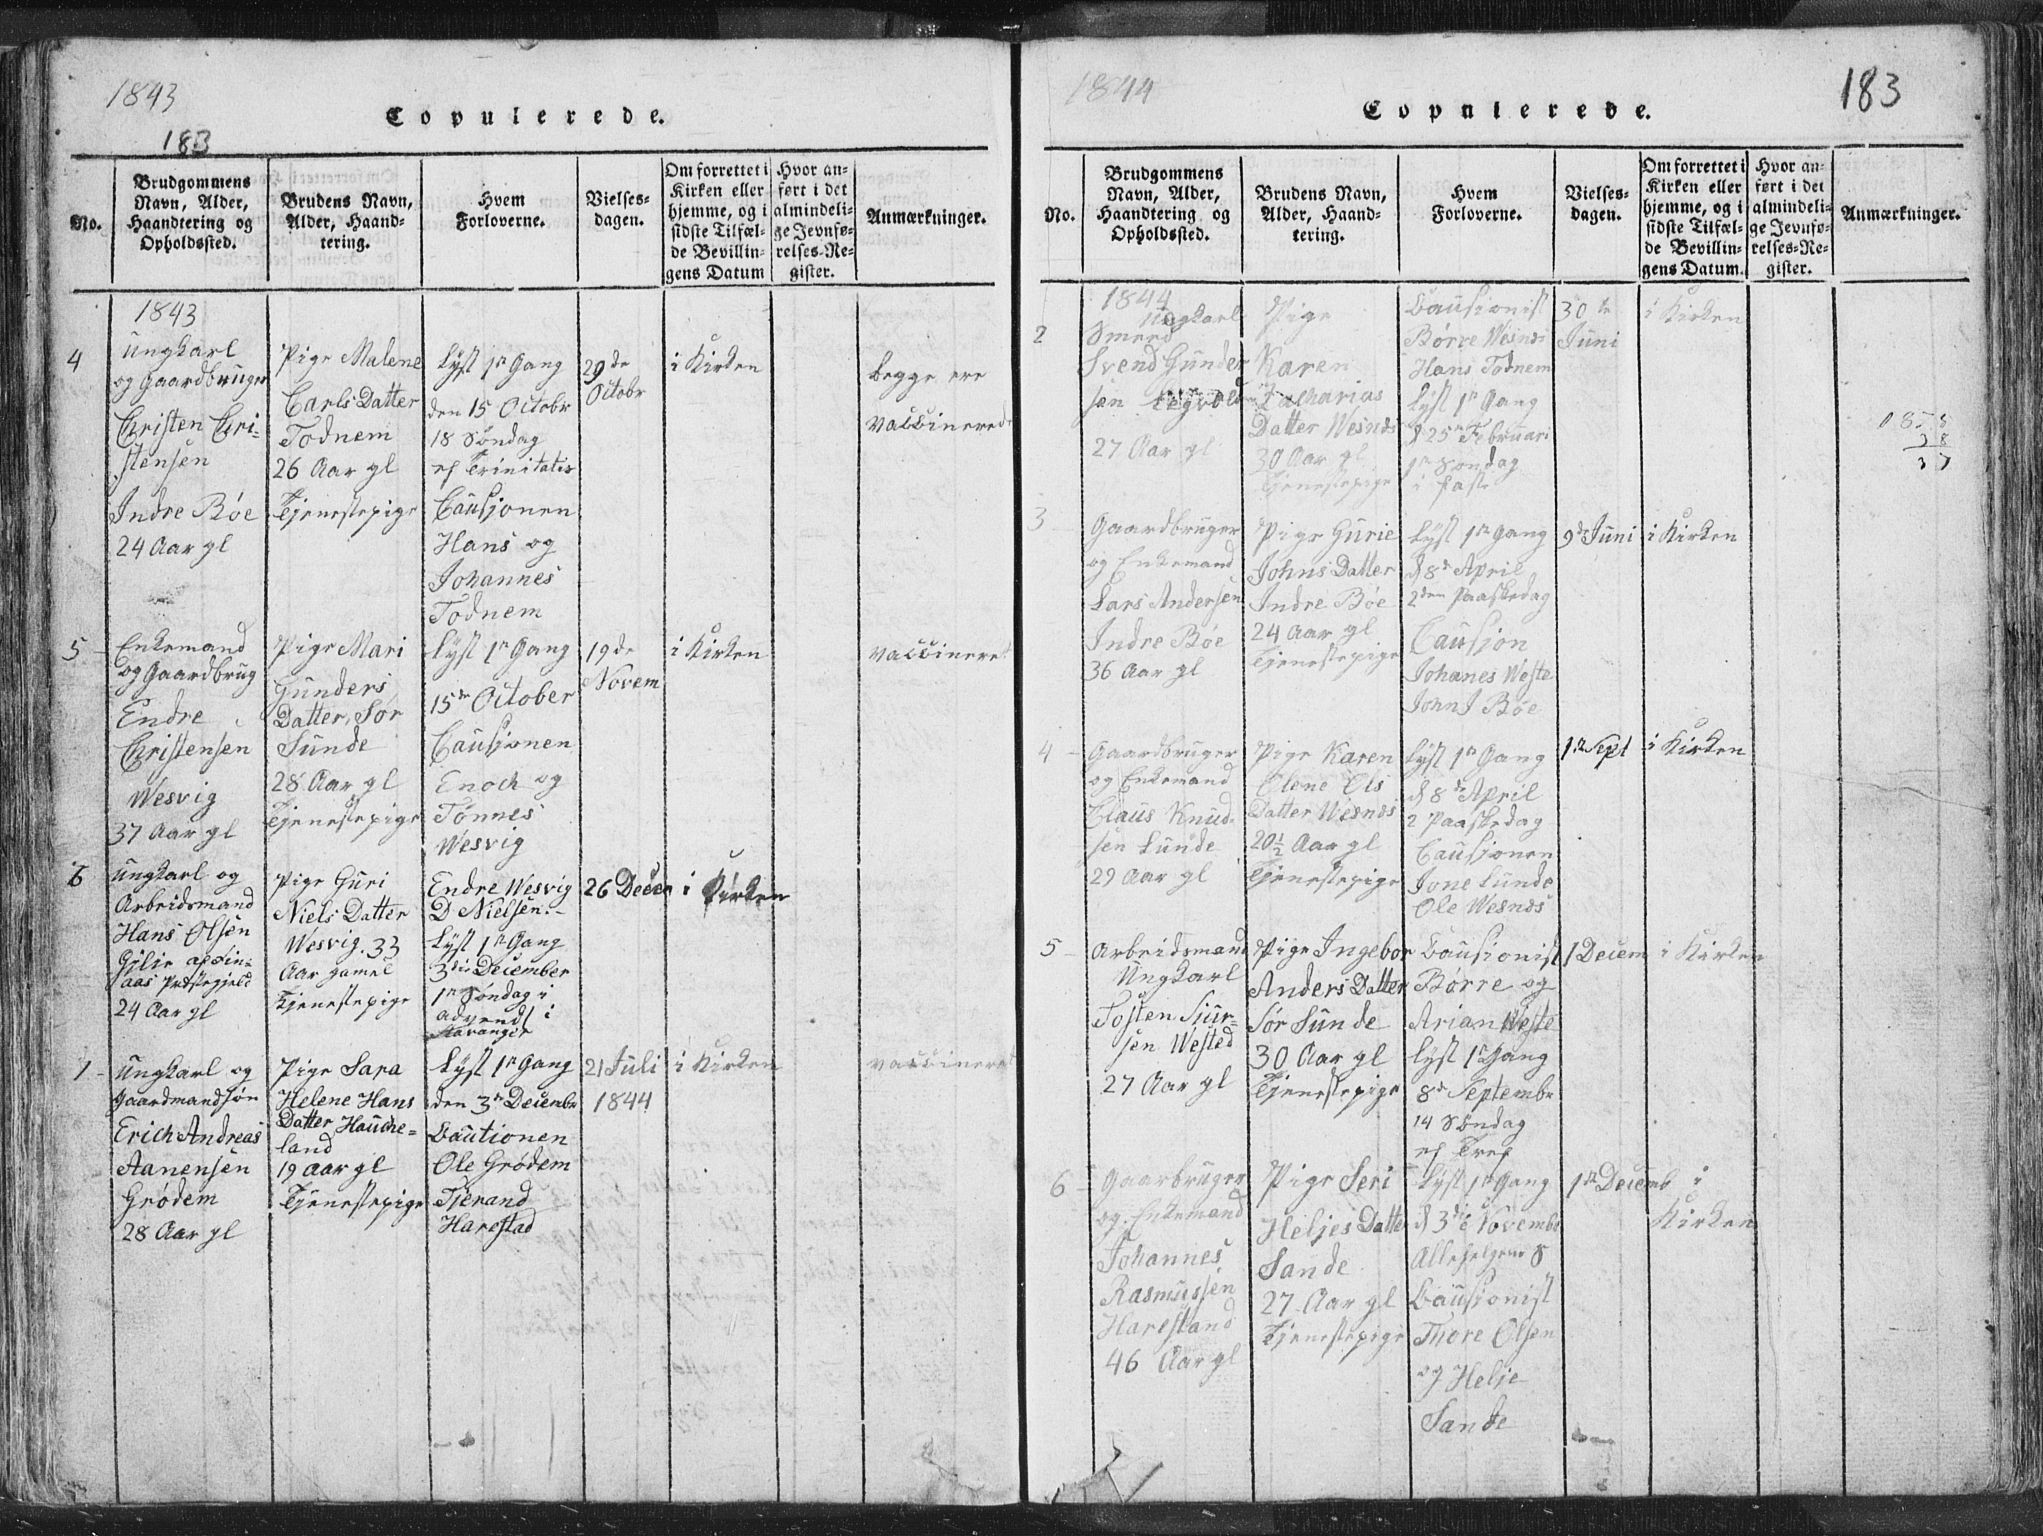 1843
Copulerede.
183
No.
Brudgommens
Navn, Alder,
Haandtering og
Opholdssted.
Brudens Navn,
Alder, Haand-
tering.
Hvem
Forloverne.
Vielses-
dagen.
Om forrettet i
Kirken eller
hjemme, og i
sidste Tilfæl-
de Bevillin-
gens Datum
Hvor an-
ført i det
almindeli-
ge Jevnfø-
relses-Re-
gister.
Anmærkninger.
1843
4
Ungkarl
og Gaardbruger
Christen Chri-
stensen
Indre Bøe
24 Aar gl
Pige Malene
Carls Datter
Todnem
26 Aar gl
Tjenestepige
Lyst 1n Gang
den 15 Octobr
18 Søndag
ef Trinitatis
Causjonen
Hans og
Johannes
Todnem
29de
Octobr
i Kirken
begge ere
vaccinerede
5
Enkemand
og Gaardbrug
Endre
Christensen
Wesvig
37 Aar gl
Pige Mari
Gunders
Datter, Sør
Sunde
28 Aar gl
Tjenestepige
Lyst 1n Gang
15de October
Causjonen
Enoch og
Tönnes
Wesvig
19de
Novem
i Kirken
vaccineret
6
Ungkarl og
Arbeidsmand
Hans Olsen
Gilie af Fin-
aas Præstegjeld
24 Aar gl
Pige Guri
Niels Datter
Wesvig. 33
Aar gamel
Tjenestepige
Endre Wesvig
D Nielsen.
Lyst 1n Gang
3die December
1n Søndag i
advendt i
Stavanger
26 Decem
i Kirken
7
Ungkarl og
Gaardmandsøn
Erich Andreas
Aanensen
Grødem
28 Aar gl
Pige Sara
Helene Hans
Datter Hauche-
land
19 Aar gl
Tjenestepige
Lyst 1n Gang
den 3n Decembr
Cautionen
Ole Grødem
Tjerand
Harestad
21 Juli
1844
i Kirken
vaccineret
1844
Copulerede.
183
No.
Brudgommens
Navn, Alder,
Haandtering og
Opholdssted.
Brudens Navn,
Alder, Haand-
tering.
Hvem
Forloverne.
Vielses-
dagen.
Om forrettet i
Kirken eller
hjemme, og i
sidste Tilfæl-
de Bevillin-
gens Datum.
Hvor an-
ført i det
almindeli-
ge Jevnfø-
relses-Re-
gister.
Anmærkninger.
1844
2
Ungkarl
Smeed
Svend Gunder
sen
27 Aar gl
Pige
Karen
Zacharias
Datter Wesnes
30 Aar gl
Tjenestepige
Causionist
Børre Wesnes
Hans Todnem
Lyst 1n Gang
d 25n Februari
1n Søndag
i faste
30te
Juni
i Kirken
3
Gaardbruger
og Enkemand
Lars Andersen
Indre Bøe
36 Aar gl
Pige Gurie
Johns Datter
Indre Bøe
24 Aar gl
Tjenestepige
Lyst 1n Gang
d 8de April
2den Paaskedag
Causjon
Johanes Weste
John J Bøe
9de Juni
i Kirken
4
Gaardbruger
og Enkemand
Claus Knud-
sen Lunde
29 Aar gl
Pige Karen
Olene Ols
Datter Wesnes
20½ Aar gl
Tjenestepige
Lyst 1n Gang
d 8de April
2 Paaskedag
Causjonen
Jone Lunde
Ole Wesnes
1te Sept
i Kirken
5
Arbeidsmand
Ungkarl
Tosten Siur-
sen Wested
27 Aar gl
Pige Ingebor
Anders Datter
Sør Sunde
30 Aar gl
Tjenestepige
Causionist
Børre og
Arian Weste
Lyst 1n Gang
8de Septembr
14 Søndag
ef Tref
1 Decem
i Kirken
6
Gaarbruger
og Enkemand
Johannes
Rasmussen
Harestand
46 Aar gl
Pige Seri
Heljes Datter
Sande
27 Aar gl
Tjenestepige
Lyst 1n Gang
d 3die Novembr
Allehelgens
Causionist
Thore Olsen
og Helje
Sande
1te Decemb
i
Kirken